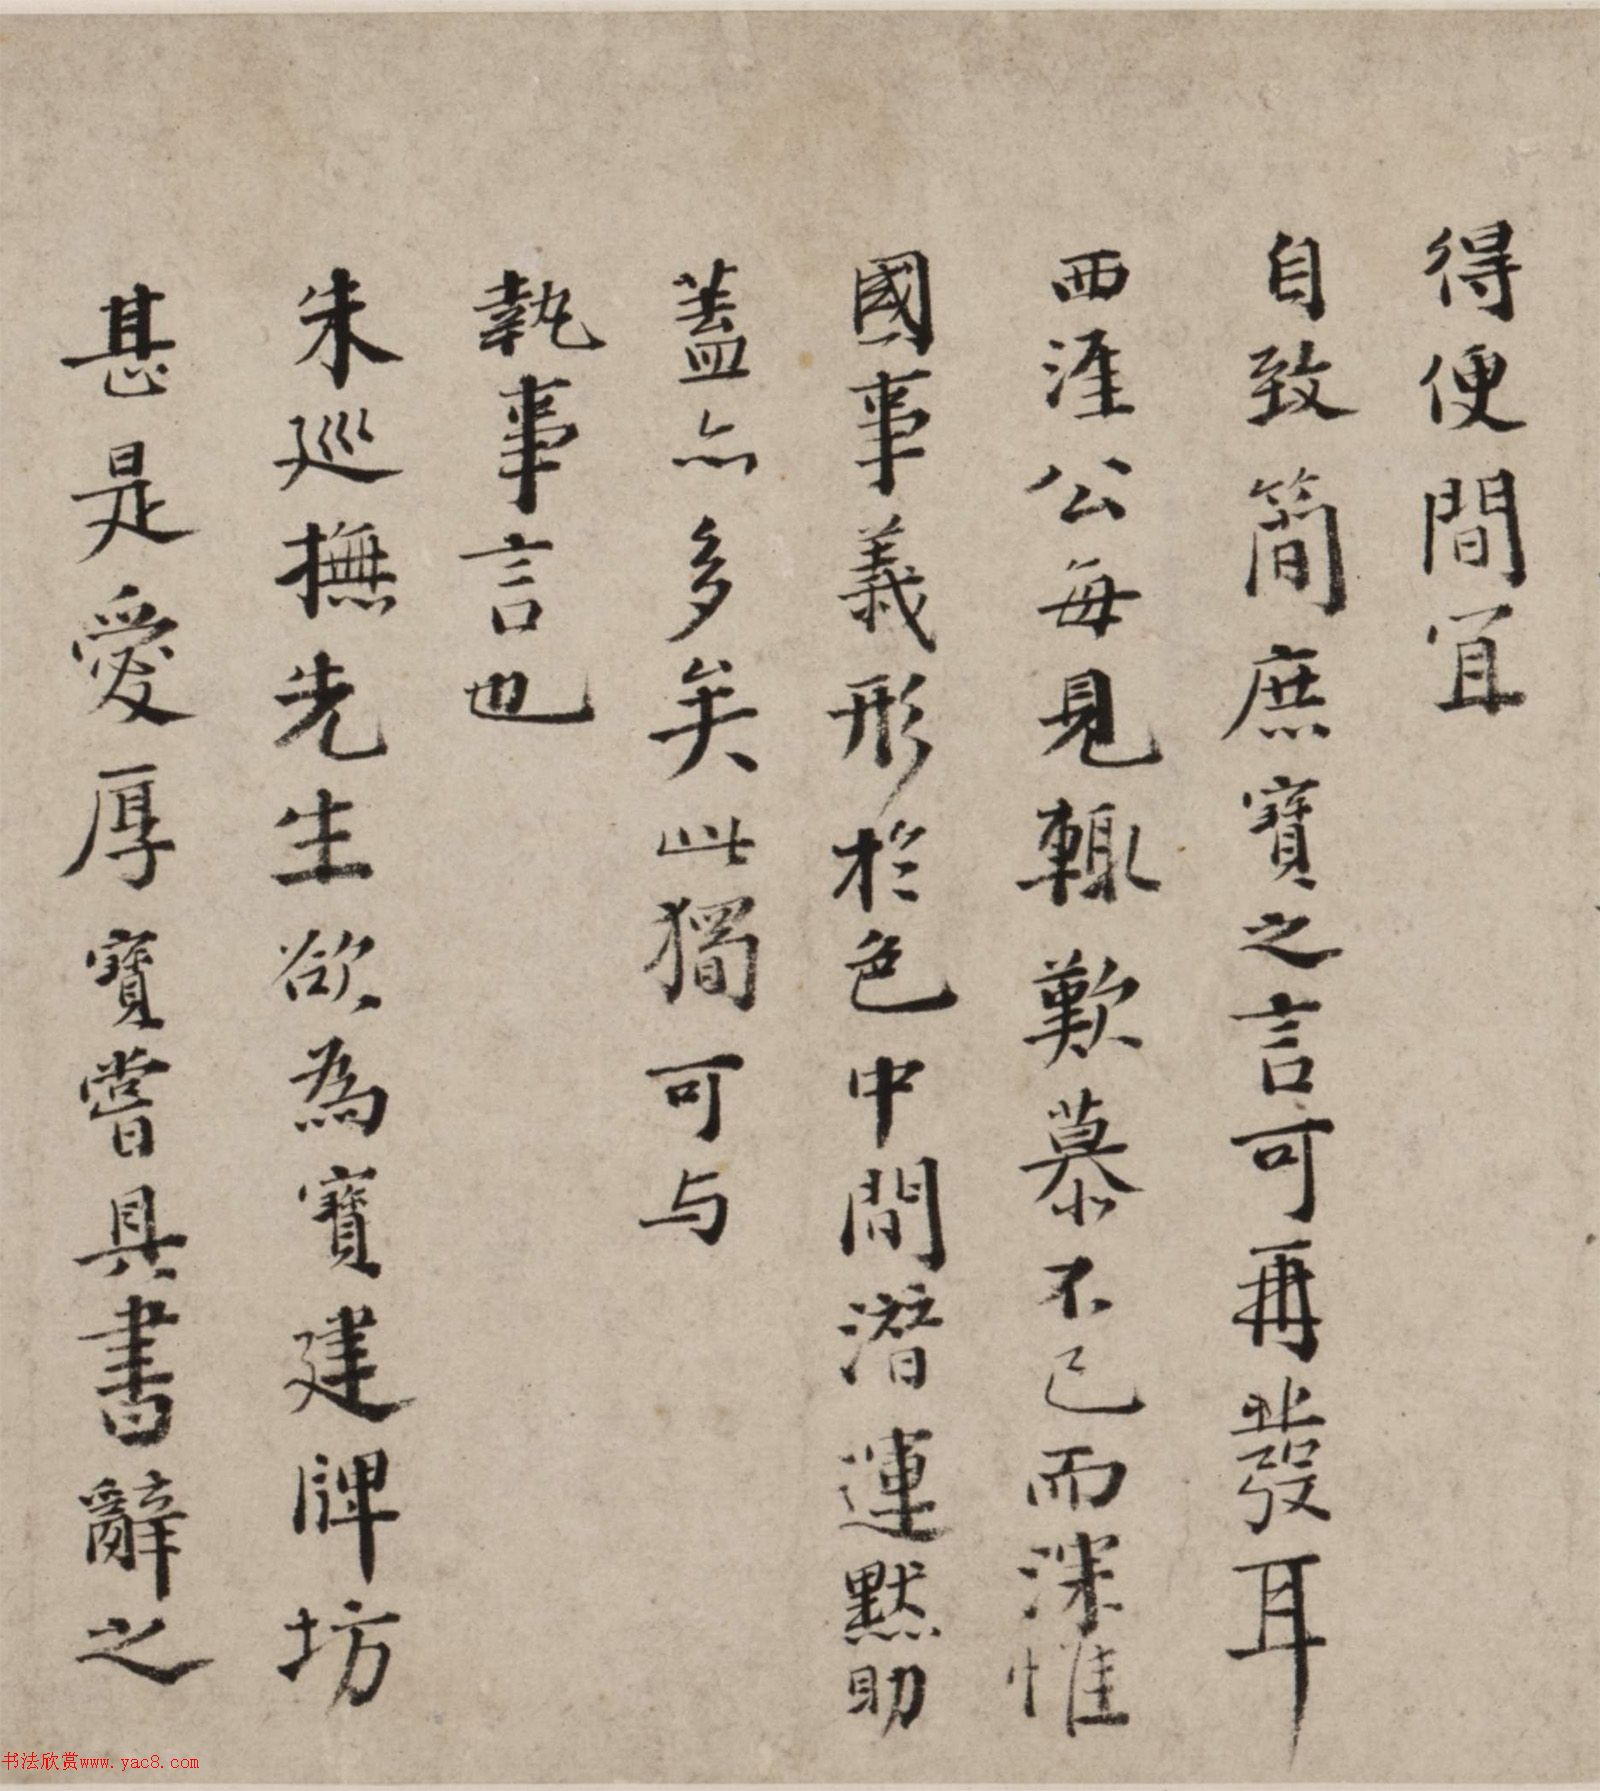 得便間宜
自致簡庶寶之言可再發耳
西涯公每見輒歎慕不已而深惟
國事義形於色中間潛運默助
蓋亦多矣此獨可与
執事言也
朱巡撫先生欲為寶建牌坊
甚是愛厚寶嘗具書辭之
书法欣赏www.yac8.com